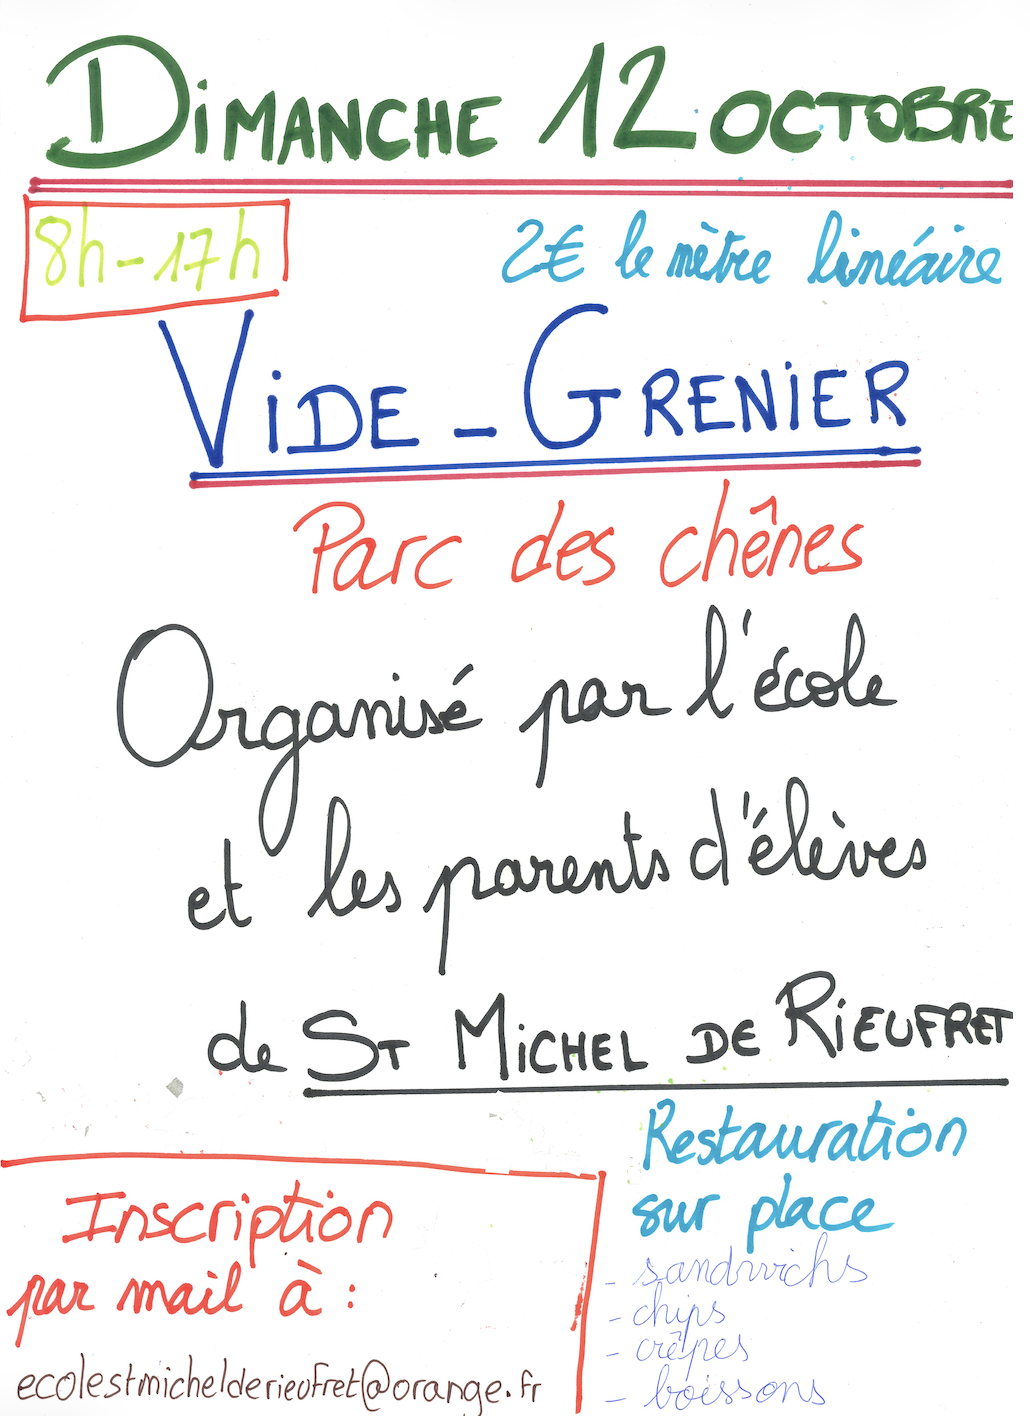 DIMANCHE 12 OCTOBRE
8h-17h
2€ le mètre linéaire
VIDE-GRENIER
Parc des chênes
Organisé par l'école
et les parents d'élèves
de ST MICHEL DE RIEUFRET
Restauration
sur place
- sandwichs
- chips
- crêpes
- boissons
Inscription
par mail à :
ecolestmichelderieufret@orange.fr